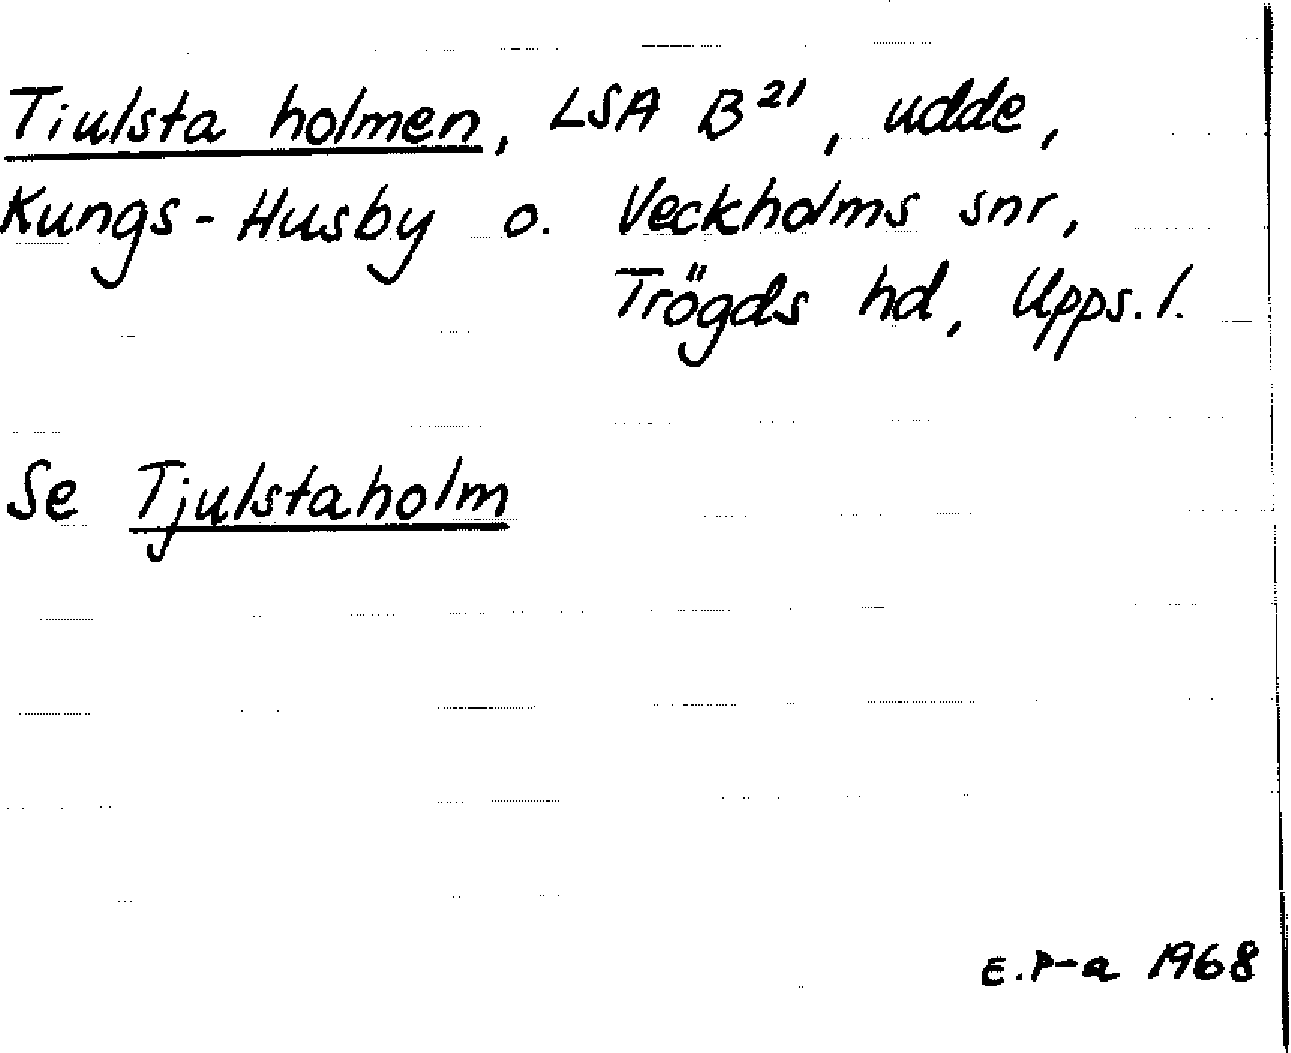 Tiulsta holmen, LSA B²¹, udde,
Kungs-Husby o. Veckholms snr,
Trögds hd, Upps. l.
Se Tjulstaholm
E.P-a 1968